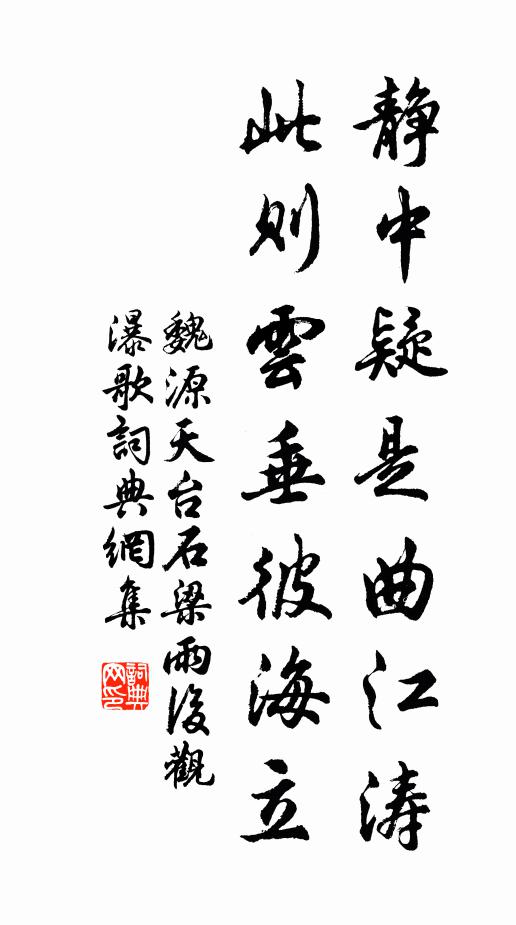 静中疑是曲江涛
此则雲垂彼海立
魏源天台石梁雨後觀
瀑歌詞典網集
詞典
网印